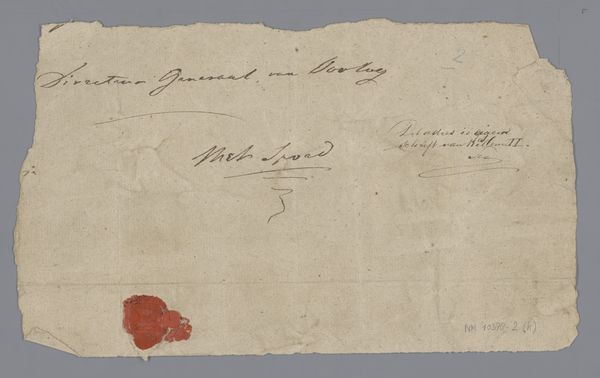 2
Directeur Generaal van Oorlog
Dit adres is eigen
schrift van Willem II.
Met Spoed
NM 10370-2 (h)